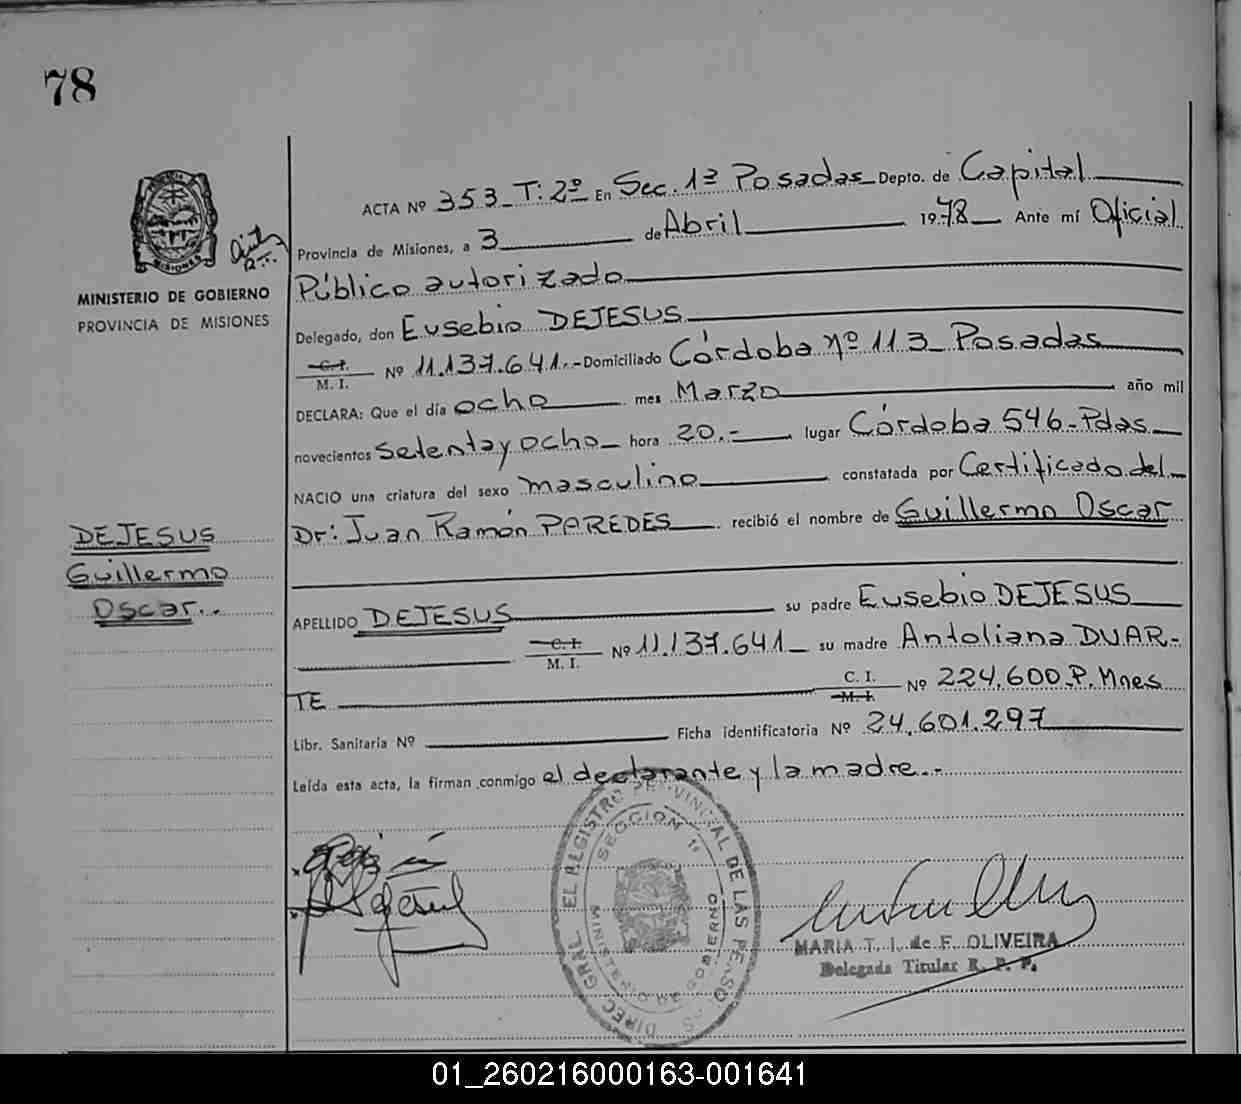 78
ACTA Nº 353 T: 2º En Sec. 1ª Posadas Depto. de Capital
Provincia de Misiones, a 3 de Abril 1978 Ante mí Oficial
Público autorizado
MINISTERIO DE GOBIERNO
PROVINCIA DE MISIONES
MISIONES
Delegado, don Eusebio DEJESUS
C.I.
M. I. Nº 11.137.641.- Domiciliado Córdoba Nº 113 Posadas
DECLARA: Que el día ocho mes Marzo año mil
novecientos setenta y ocho hora 20.- lugar Córdoba 546-Pdas
NACIO una criatura del sexo masculino constatada por Certificado del
Dr: Juan Ramón PAREDES recibió el nombre de Guillermo Oscar
DEJESUS
Guillermo
Oscar..
APELLIDO DEJESUS su padre Eusebio DEJESUS
C.I.
M. I. Nº 11.137.641 su madre Antoliana DUAR-
TE C. I.
M. I. Nº 224.600.P.Mnes
Libr. Sanitaria Nº Ficha identificatoria Nº 24.601.297
Leída esta acta, la firman conmigo el declarante y la madre.-
DIREC GRAL EL REGISTRO PROVINCIAL DE LAS PERSONAS
SECCION 1ª
MINISTERIO DE GOBIERNO
MARIA T. I. de F. OLIVEIRA
Delegada Titular R. P. P.
01_260216000163-001641